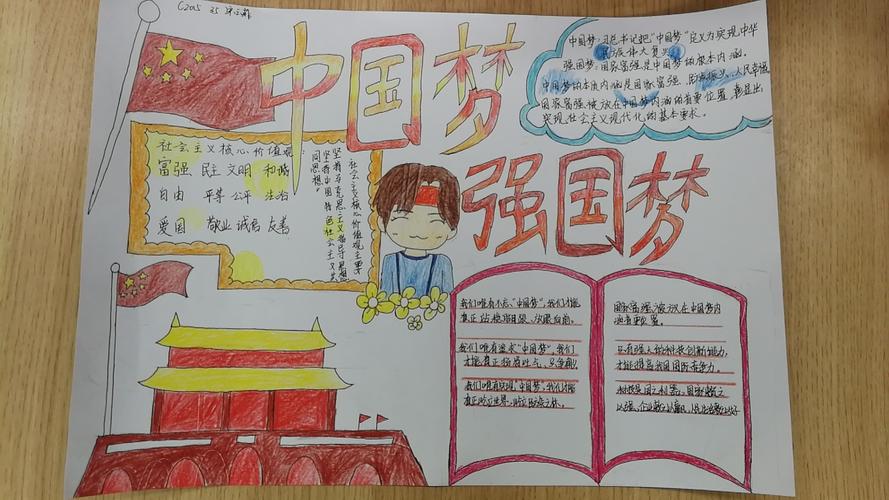 中国梦
强国梦
中国梦：习总书记把“中国梦”定义为实现中华
民族伟大复兴
强国梦：国家富强是中国梦的根本内涵。
中国梦的本质内涵是国家富强、民族振兴、人民幸福
国家富强被放在中国梦内涵的首要位置，彰显出
实现社会主义现代化的基本要求。
社会主义核心价值观：
富强 民主 文明 和谐
自由 平等 公平 法治
爱国 敬业 诚信 友善
社会主义核心价值观主要
坚持马克思主义指导思想
坚持中国特色社会主义共
同思想。
我们唯有不忘“中国梦”，我们才能
真正站稳脚跟、放眼向前。
我们唯有追求“中国梦”，我们
才能真正扬眉吐气、
我们唯有实现“中国梦”，我们才能
真正屹立世界、屹立民族之林。
国家富强被放在中国梦内
涵首要位置。
只有强大的科技创新能力，
才能提高我国国际竞争力。
科技是国之利器，国家赖之
以强，企业赖之以赢，人民生活赖之以好